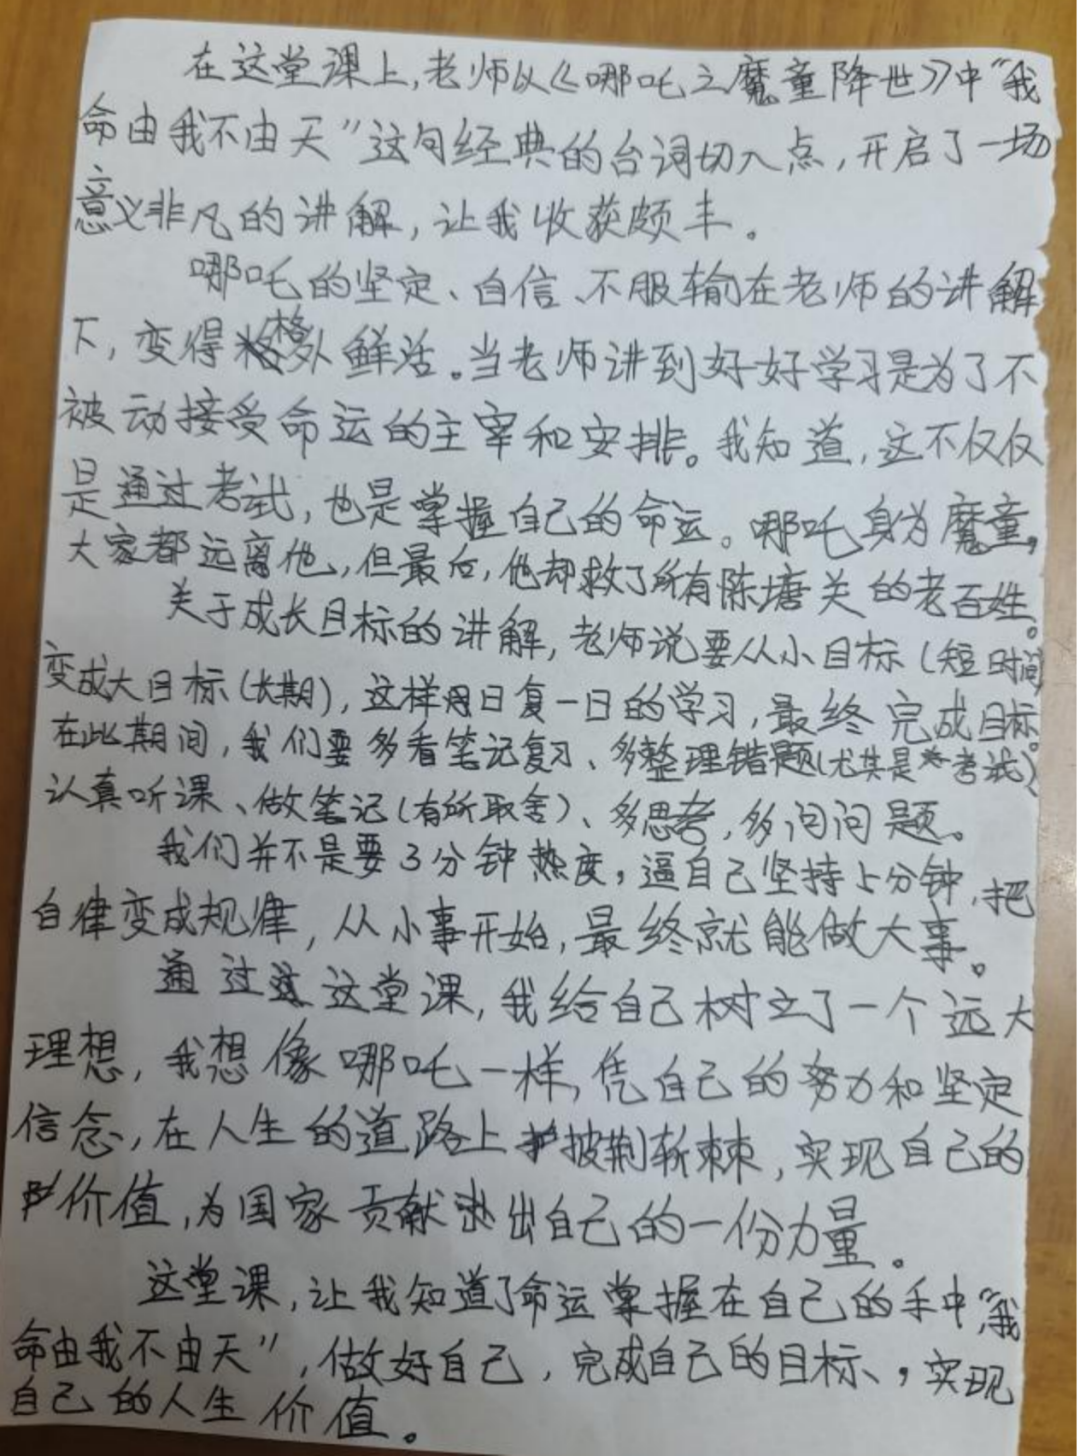 在这堂课上,老师以《哪吒之魔童降世》中“我
命由我不由天”这句经典的台词切入点,开启了一场
意义非凡的讲解,让我收获颇丰。
哪吒的坚定、自信、不服输在老师的讲解
下,变得格外鲜活。当老师讲到好好学习是为了不
被动接受命运的主宰和安排。我知道,这不仅仅
是通过考试,也是掌握自己的命运。哪吒身为魔童,
大家都远离他,但最后,他却救了所有陈塘关的老百姓。
关于成长目标的讲解,老师说要从小目标(短时间)
变成大目标(长期),这样日复一日的学习,最终完成目标。
在此期间,我们要多看笔记复习、多整理错题(尤其是考试)
认真听课、做笔记(有所取舍)、多思考,多问问题。
我们并不是要3分钟热度,逼自己坚持5分钟,把
自律变成规律,从小事开始,最终就能做大事。
通过这堂课,我给自己树立了一个远大
理想,我想像哪吒一样,凭自己的努力和坚定
信念,在人生的道路上披荆斩棘,实现自己的
价值,为国家贡献出自己的一份力量。
这堂课,让我知道了命运掌握在自己的手中,“我
命由我不由天”,做好自己,完成自己的目标、,实现
自己的人生价值。